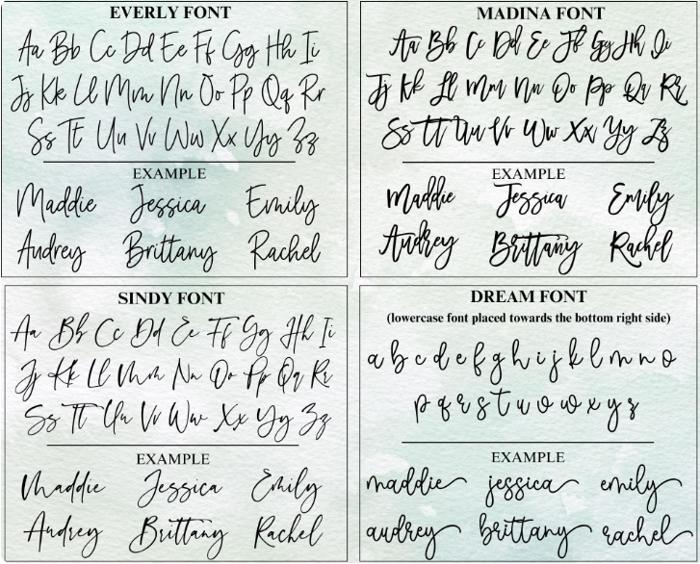 EVERLY FONT
Aa Bb Cc Dd Ee Ff Gg Hh Ii
Jj Kk Ll Mm Nn Oo Pp Qq Rr
Ss Tt Uu Vv Ww Xx Yy Zz
EXAMPLE
Maddie Jessica Emily
Audrey Brittany Rachel
MADINA FONT
Aa Bb Cc Dd Ee Ff Gg Hh Ii
Jj Kk Ll Mm Nn Oo Pp Qq Rr
Ss Tt Uu Vv Ww Xx Yy Zz
EXAMPLE
Maddie Jessica Emily
Audrey Brittany Rachel
SINDY FONT
Aa Bb Cc Dd Ee Ff Gg Hh Ii
Jj Kk Ll Mm Nn Oo Pp Qq Rr
Ss Tt Uu Vv Ww Xx Yy Zz
EXAMPLE
Maddie Jessica Emily
Audrey Brittany Rachel
DREAM FONT
(lowercase font placed towards the bottom right side)
a b c d e f g h i j k l m n o
p q r s t u v w x y z
EXAMPLE
maddie jessica emily
audrey brittany rachel